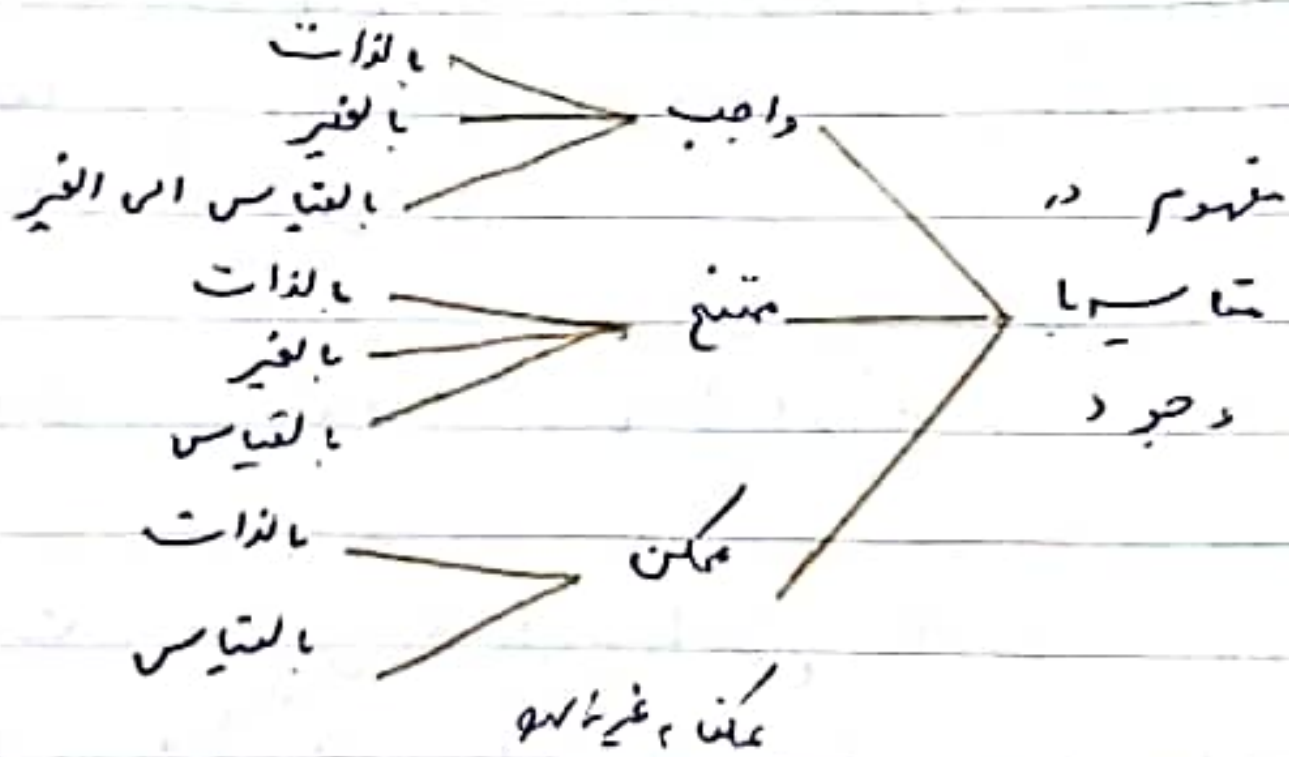 مفهوم در
مقایسه با
وجود
واجب
بالذات
بالغیر
بالقیاس الی الغیر
ممتنع
بالذات
بالغیر
بالقیاس
ممکن
بالذات
بالقیاس